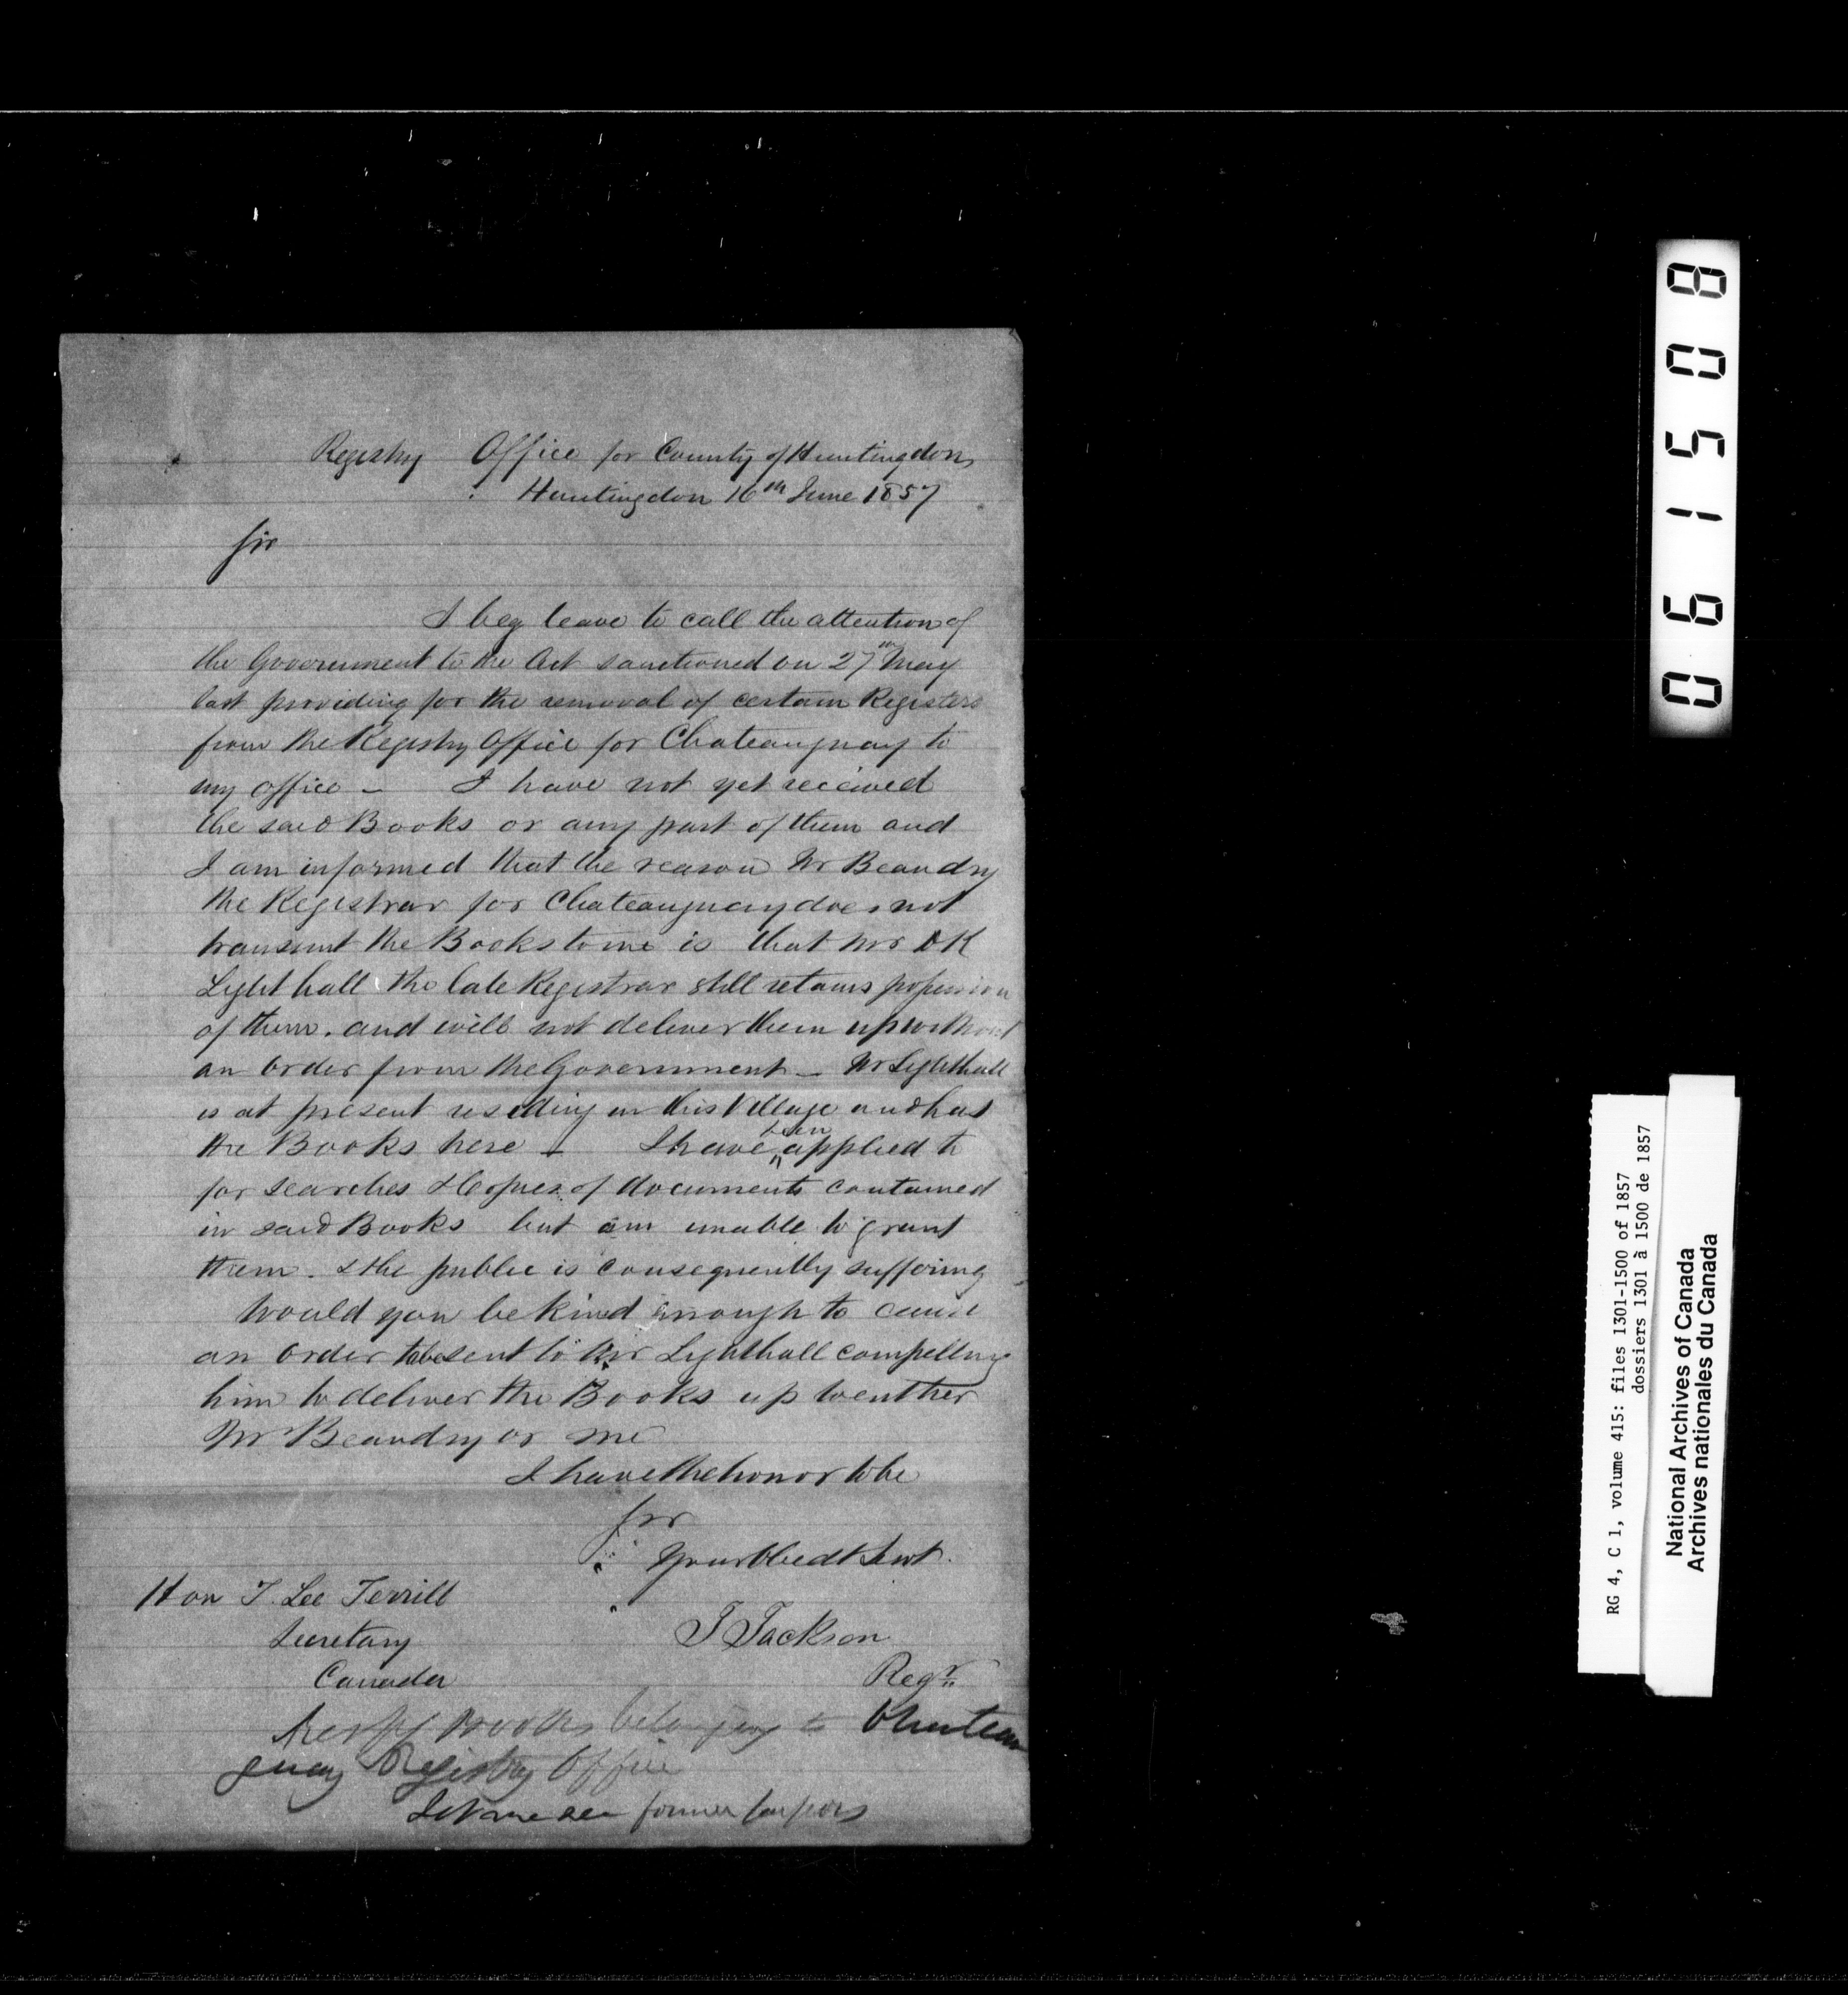 Registry Office for County of Huntingdon
Huntingdon 16th June 1857
Sir
I beg leave to call the attention of
the Government to the Act sanctioned on 27th May
last providing for the removal of certain Registers
from the Registry Office for Chateauguay to
my office - I have not yet received
the said Books or any part of them and
I am informed that the reason Mr Beaudry
the Registrar for Chateauguay does not
transmit the Books to me is that Mr DK
Lighthall the late Registrar still retains possession
of them. and will not deliver them up without
an order from the Government - Mr Lighthall
is at present residing in this Village and has
the Books here - I have been applied to
for searches & Copies of documents contained
in said Books but am unable to grant
them. & the public is consequently suffering
Would you be kind enough to cause
an order to be sent to Mr Lighthall compelling
him to deliver the Books up to either
Mr Beaudry or me
I have the honor to be
Sir
Your Obedt Servt.
Hon T. Lee Terrill
Secretary
Canada
J Jackson
Regr
Books belonging to Chateau
guay Registry Office
see former papers
061508
RG 4, C 1, volume 415: files 1301-1500 of 1857
dossiers 1301 à 1500 de 1857
National Archives of Canada
Archives nationales du Canada